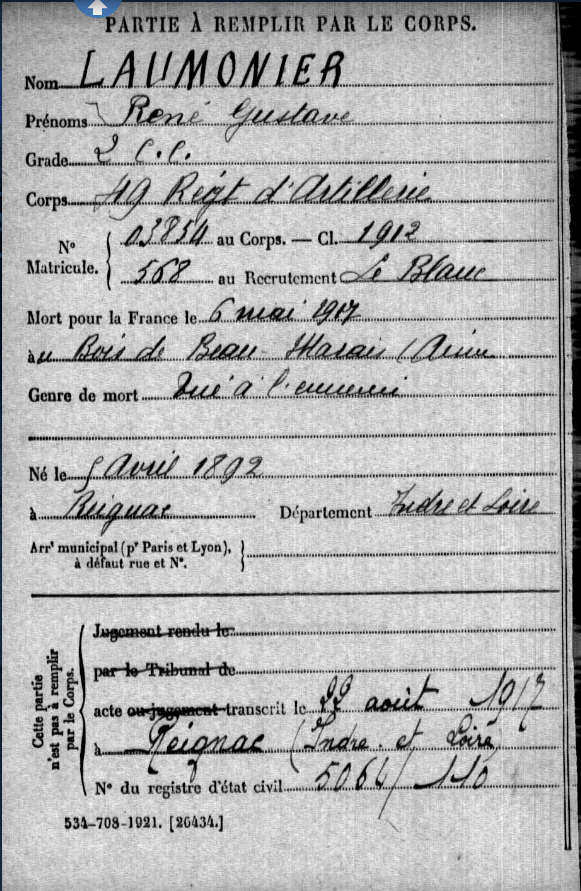 PARTIE À REMPLIR PAR LE CORPS.
Nom LAUMONIER
Prénoms René Gustave
Grade 2 C.C.
Corps 49 Régt d'Artillerie
N° Matricule. { 03854 au Corps. — Cl. 1912
568 au Recrutement Le Blanc
Mort pour la France le 6 mai 1917
à u Bois de Beau-Marais (Aisne
Genre de mort Tué à l'ennemi
Né le 5 Avril 1892
à Reignac Département Indre et Loire
Arrt municipal (pr Paris et Lyon), à défaut rue et N°. }
Cette partie n'est pas à remplir par le Corps.
Jugement rendu le
par le Tribunal de
acte ou jugement transcrit le 22 août 1917
à Reignac (Indre et Loire)
N° du registre d'état civil 5061/110
534-708-1921. [26434.]